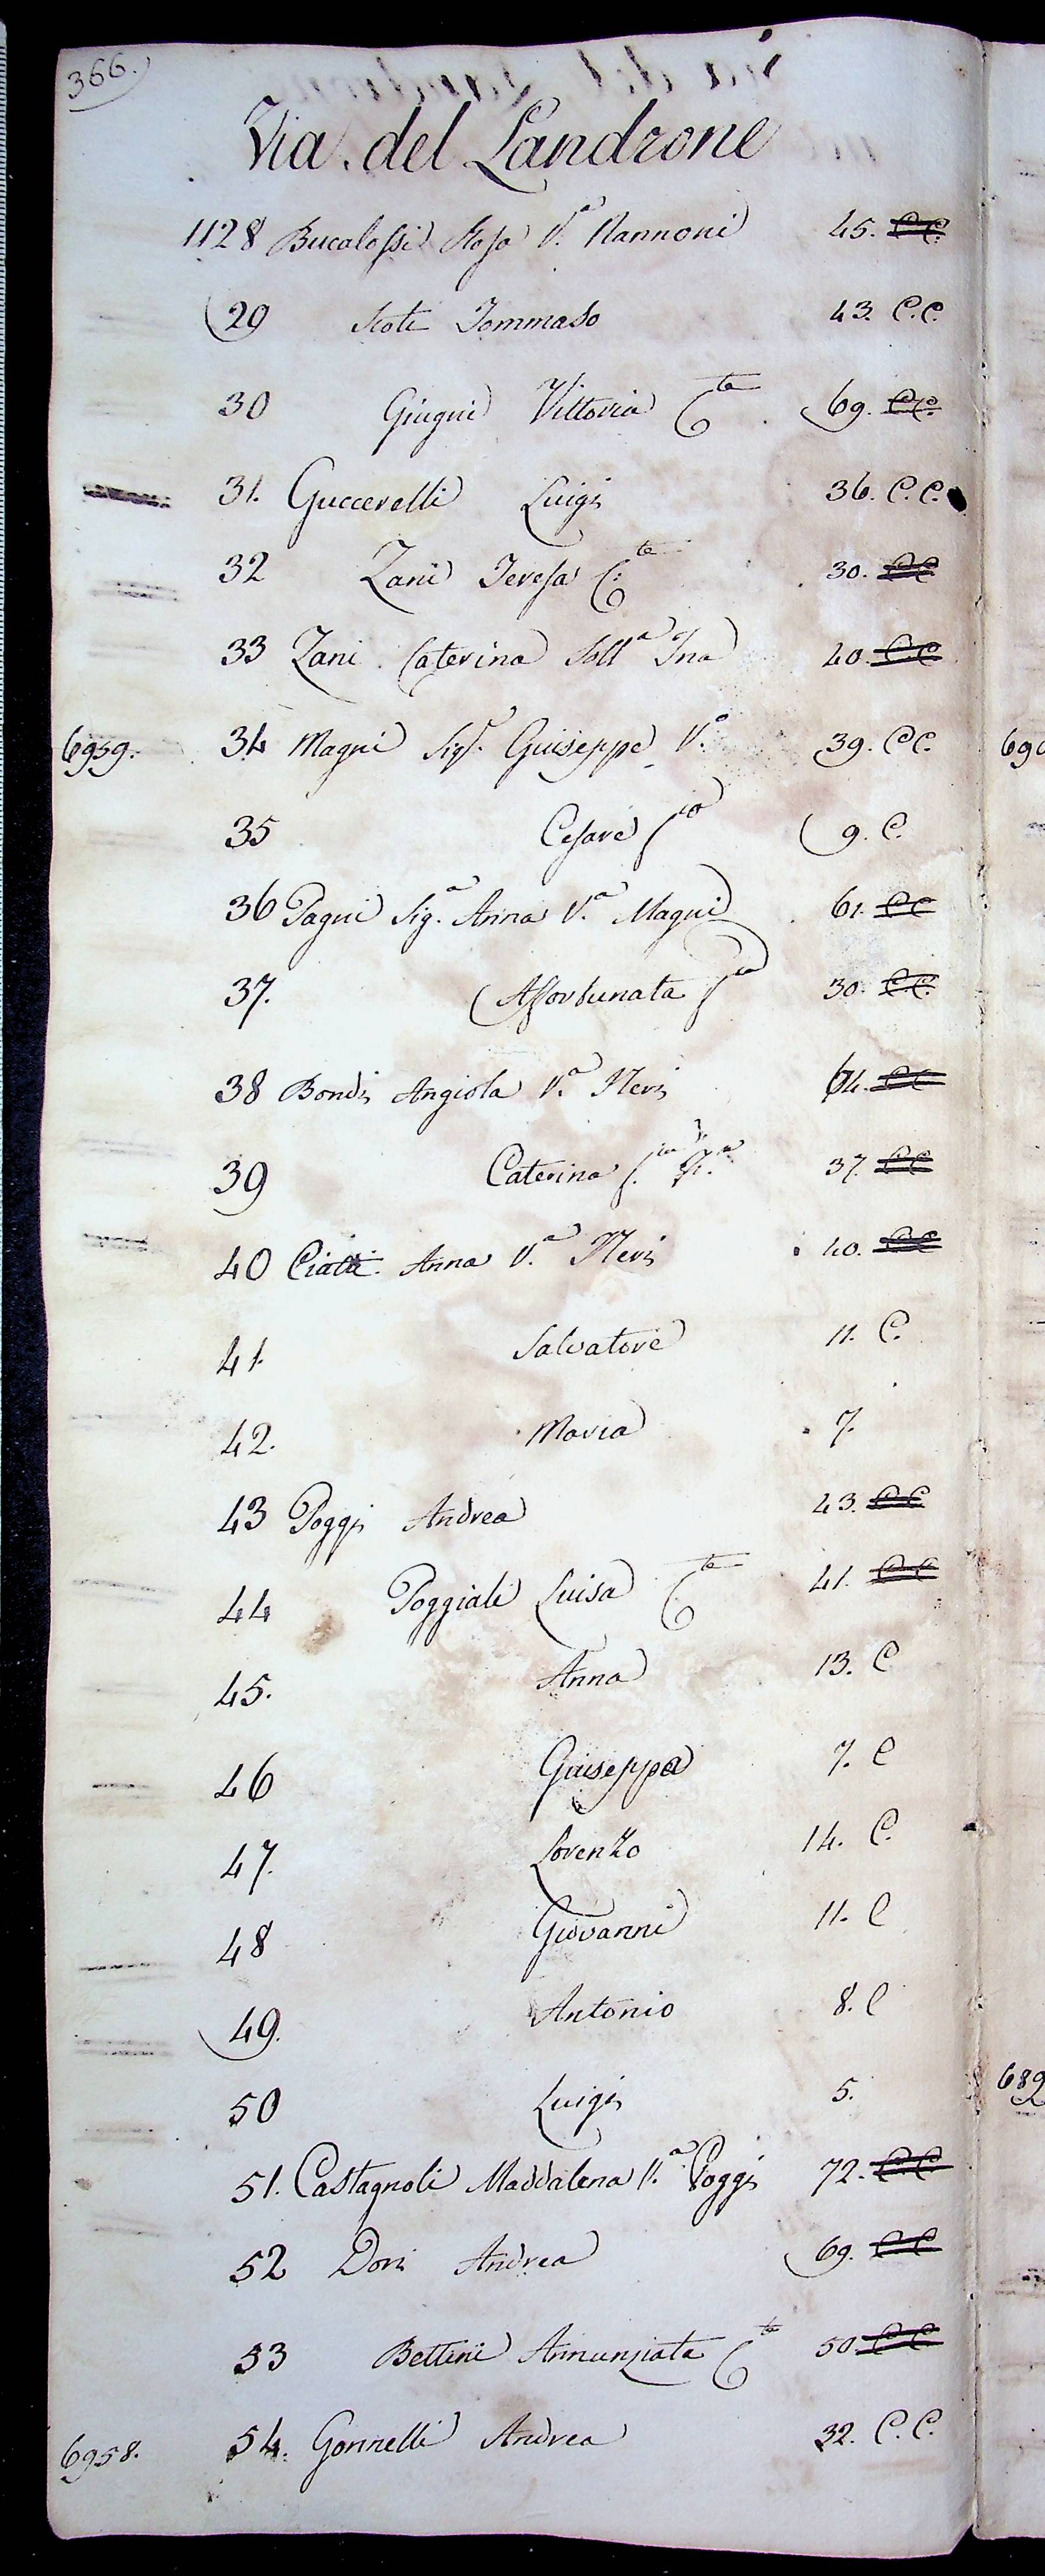 366.
Via del Landrone
1128 Bucalossi Rosa V.a Nannoni 45. C.C.
29 Scoti Tommaso 43. C.C.
30 Giugni Vittoria C.te 69. C.C.
31. Guccerelli Luigi 36. C.C.
32 Zani Teresa C.te 30. C.C.
33 Zani Caterina Soll.a Ina 40. C.C.
6959. 34 Magni Sig.r Giuseppe V.o 39. C.C.
35 Cesare f.io 9. C.
36 Pagni Sig.a Anna V.a Magni 61. C.C.
37. Assortunata f.ia 30. C.C.
38 Bondi Angiola V.a Neri 64. C.C.
39 Caterina f.ia 37. C.C.
40 Ciati Anna V.a Neri 40. C.C.
41. Salvatore 11. C.
42. Maria 7.
43 Poggi Andrea 43. C.C.
44 Poggiali Luisa C.te 41. C.C.
45. Anna 13. C
46 Giuseppa 7. C
47. Lorenzo 14. C.
48 Giovanni 11. C
49. Antonio 8. C
50 Luigi 5.
51. Castagnoli Maddalena V.a Poggi 72. C.C.
52 Dori Andrea 69. C.C.
53 Bettini Annunziata C.te 50. C.C.
6958. 54. Gonnelli Andrea 32. C.C.